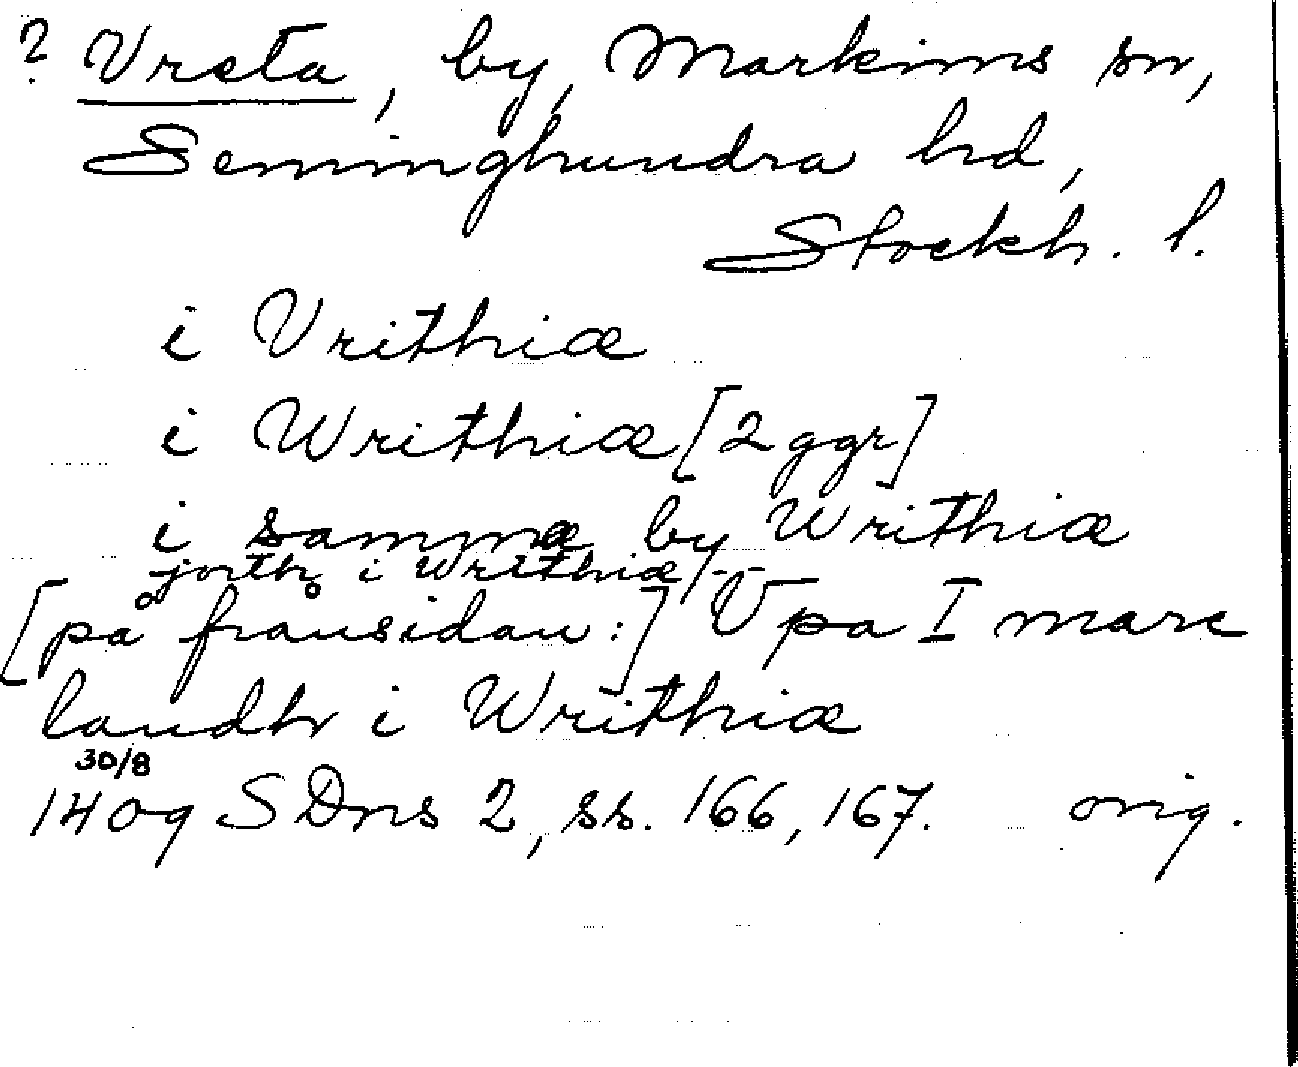 ? Vreta, by, Markims sn,
Seminghundra hd,
Stockh. l.
i Vrithiæ
i Writhiæ [2 ggr]
i sammæ by Writhiæ
jorth i Writhiæ/--
[på fransidan:] Vpa I marc
landh i Writhiæ
30/8
1409 SDns 2, ss. 166, 167. orig.